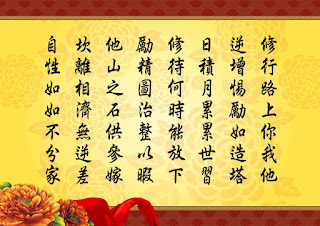 修行路上你我他
逆增惕勵如造塔
日積月累累世習
修待何時能放下
勵精圖治整以暇
他山之石供參嫁
坎離相濟無逆差
自性如如不分家